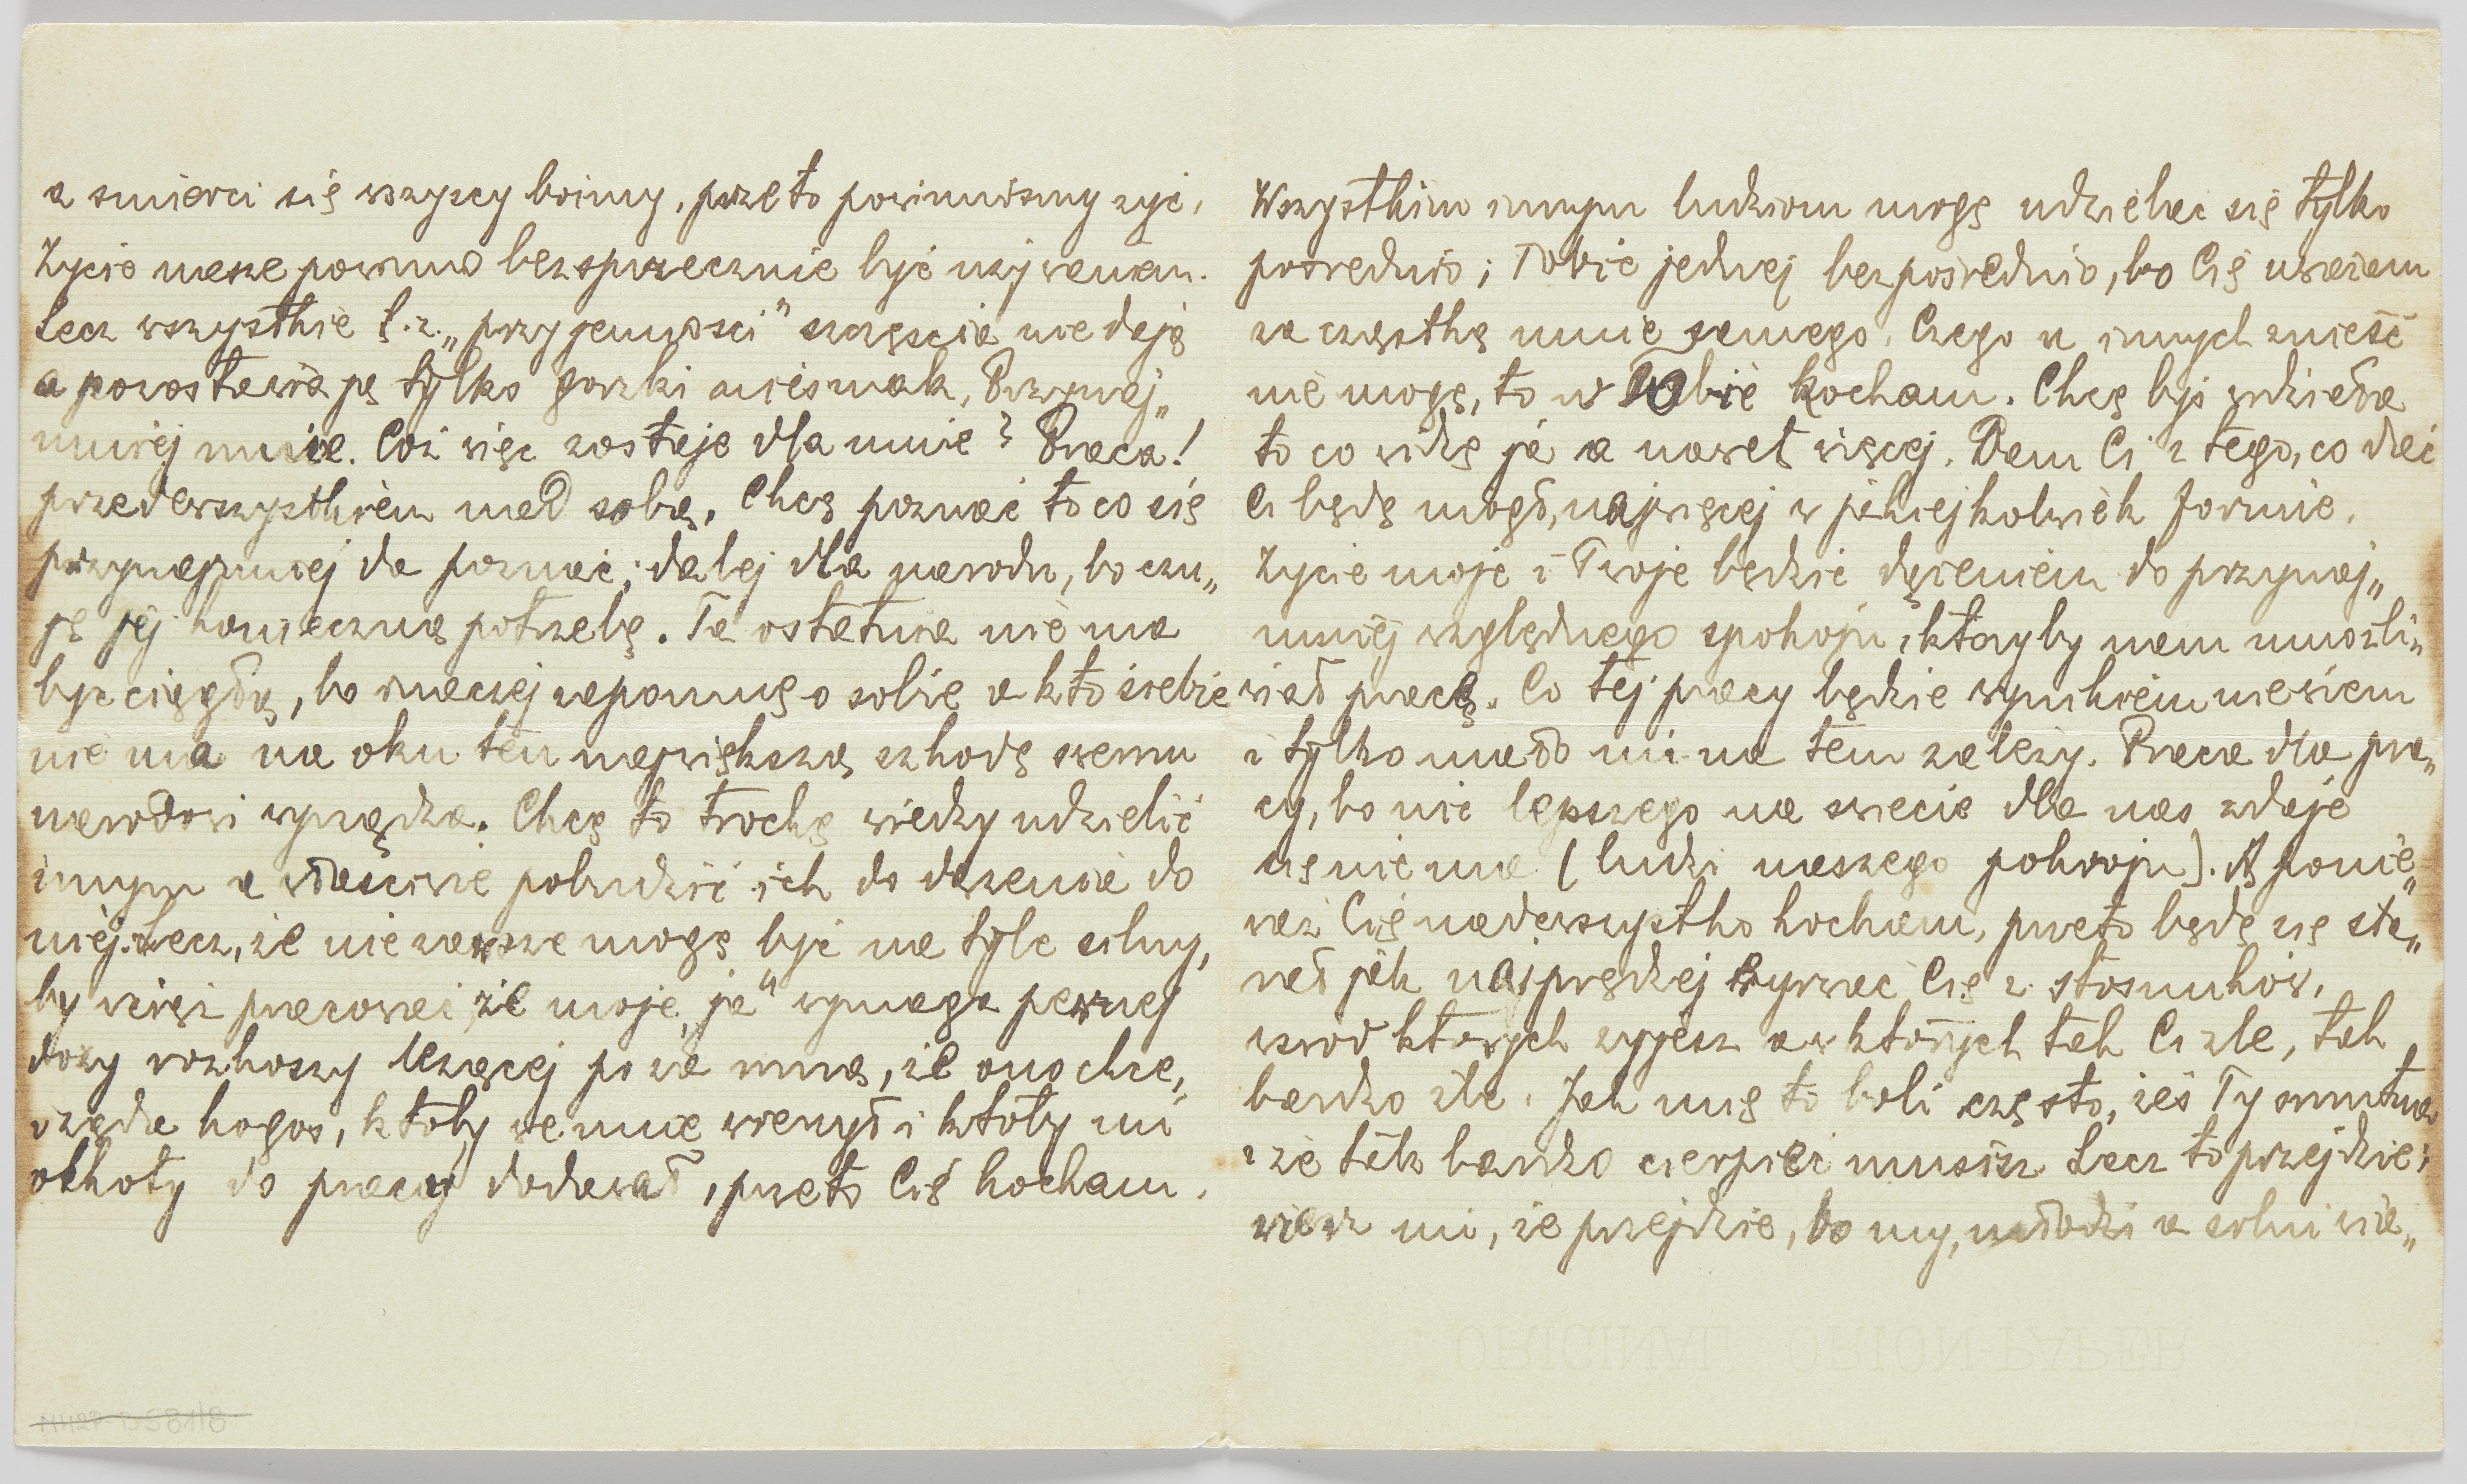 a smierci się wszyscy boimy, przeto powinniśmy zyć,
Życie nasze powinno bezsprzecznie być używaniem.
Lecz wszystkie t. z. „przyjemności" szczęścia nie dają
a pozostawiają tylko gorzki niesmak, Przynaj„
mniej mnie. Cóż więc zostaje dla mnie? Praca!
przedewszystkiem nad sobą. Chcę poznać to co się
przynajmniej da poznać; dalej dla narodu, bo czu„
ję jej konieczną potrzebę. Ta ostatnia nie ma
być ciągłą, bo inaczej zapomnę o sobie a kto siebie
nie ma na oku ten największą szkodę swemu
narodowi wyrządza. Chcę to trochę wiedzy udzielić
innym a właściwie pobudzić ich do dążenia do
niej. Lecz, że nie zawsze mogę być na tyle silny,
by wciąż pracować, że moje „ja" wymaga pewnej
dozy rozkoszy leżącej po za mną, że ono chce,
żąda kogoś, któby we mnie wierzył i któby mi
ochoty do pracy dodawał, przeto Cię kocham.
Wszystkim innym ludziom mogę udzielać się tylko
pośrednio; Tobie jednej bezpośrednio, bo Cię uważam
za cząstkę mnie samego. Czego u innych znieść
nie mogę, to w Tobie kocham. Chcę byś widziała
to co widzę ja a nawet więcej. Dam Ci z tego, co dać
Ci będę mógł, najwięcej w jakiejkolwiek formie.
Życie moje i Twoje będzie dążeniem do przynaj„
mniej względnego spokoju, któryby nam umożli„
wiał pracę. Co tej pracy będzie wynikiem nie wiem
i tylko mało mi na tem zależy. Praca dla pra„
cy, bo nic lepszego na świecie dla nas zdaje
się nie ma (ludzi naszego pokroju). A ponie„
waż Cię nadewszystko kocham, przeto będę się sta„
rał jak najprędzej wyrwać Cię z stosunków,
wśród których żyjesz a w których tak Ci źle, tak
bardzo źle. Jak mię to boli często, żeś Ty smutna
i że tak bardzo cierpieć musisz. Lecz to przejdzie;
wierz mi, że przejdzie, bo my, młodzi a silni wia„
ORIGINAL ORION-PAPER